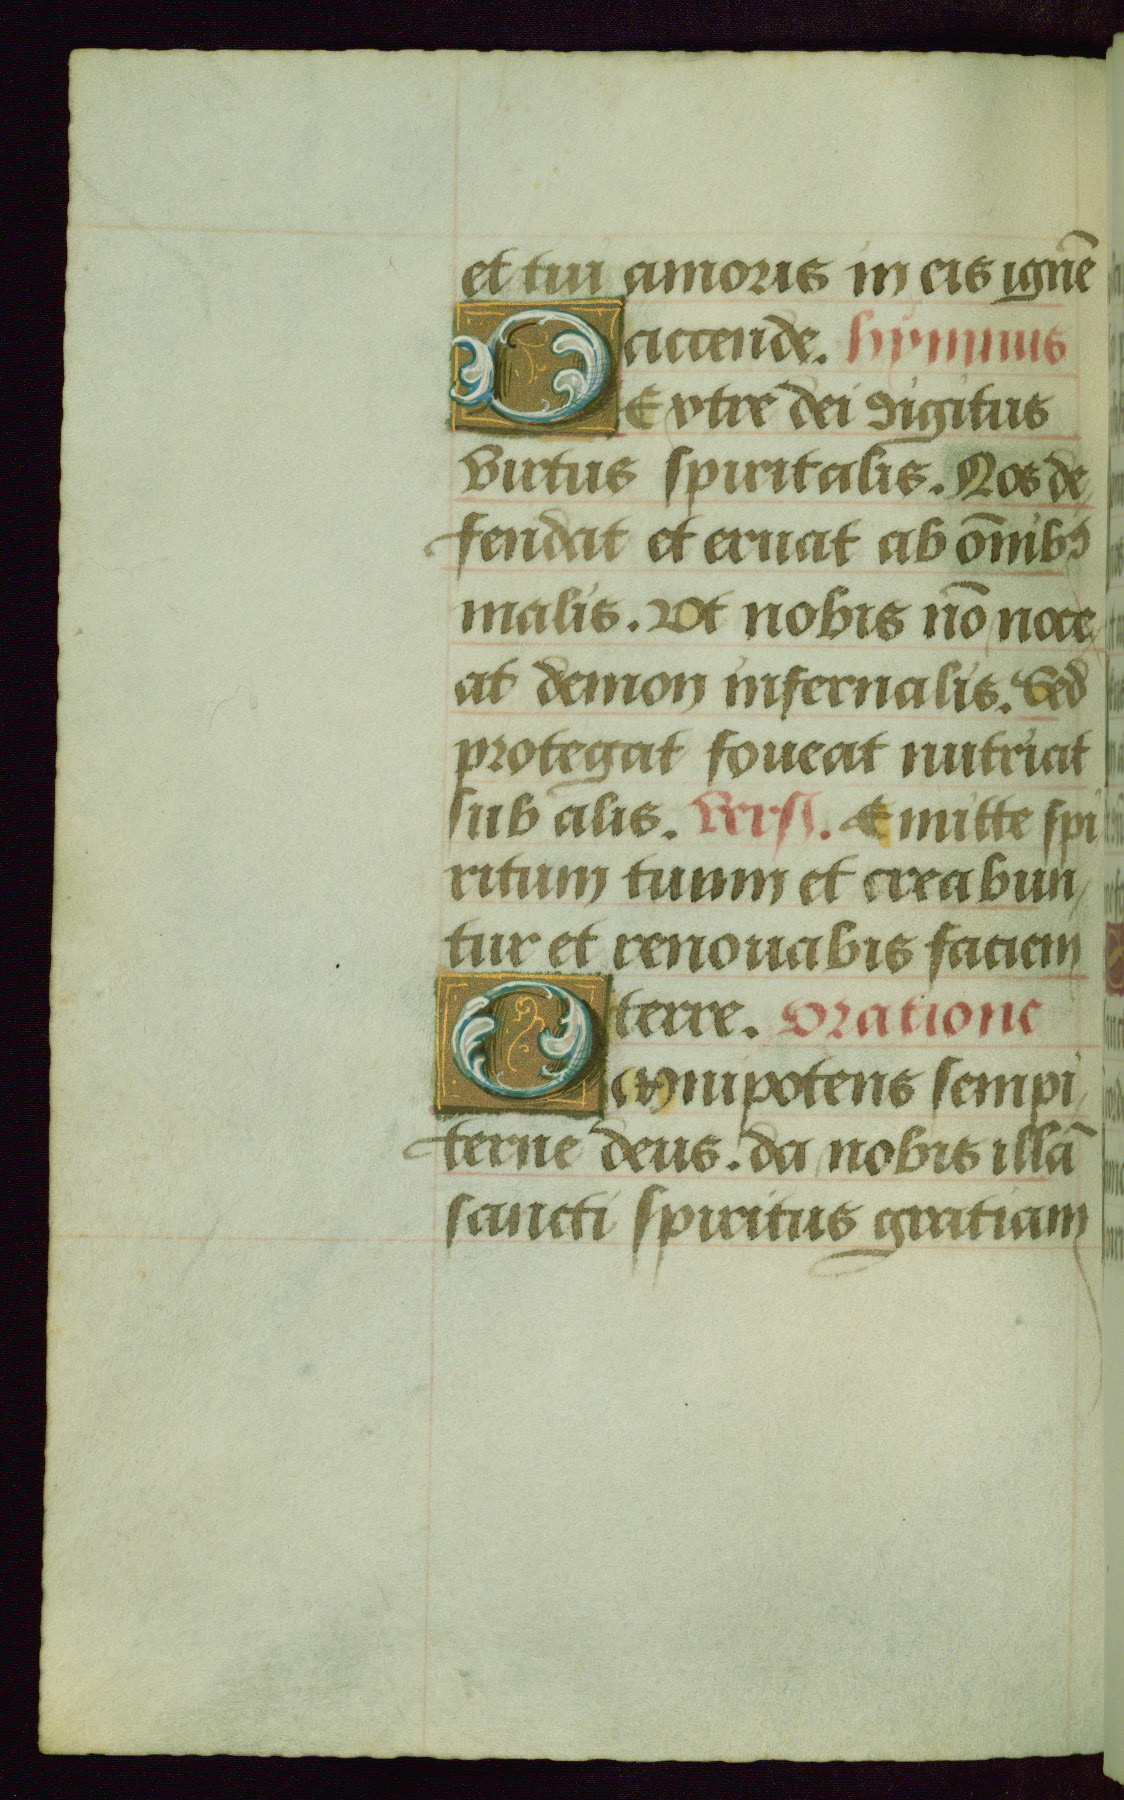 et tui amoris in eis ignē
accende. hympnus
DExtre dei digitus
virtus spiritalis. Nos de
fendat et eruat ab om̄ibꝰ
malis. Vt nobis nō noce
at demon infernalis. Sed
protegat foueat nutriat
sub alis. Vers. Emitte spi
ritum tuum et creabun
tur et renouabis faciem
terre. Oratione
Omnipotens sempi
terne deus. da nobis illā
sancti spiritus gratiam